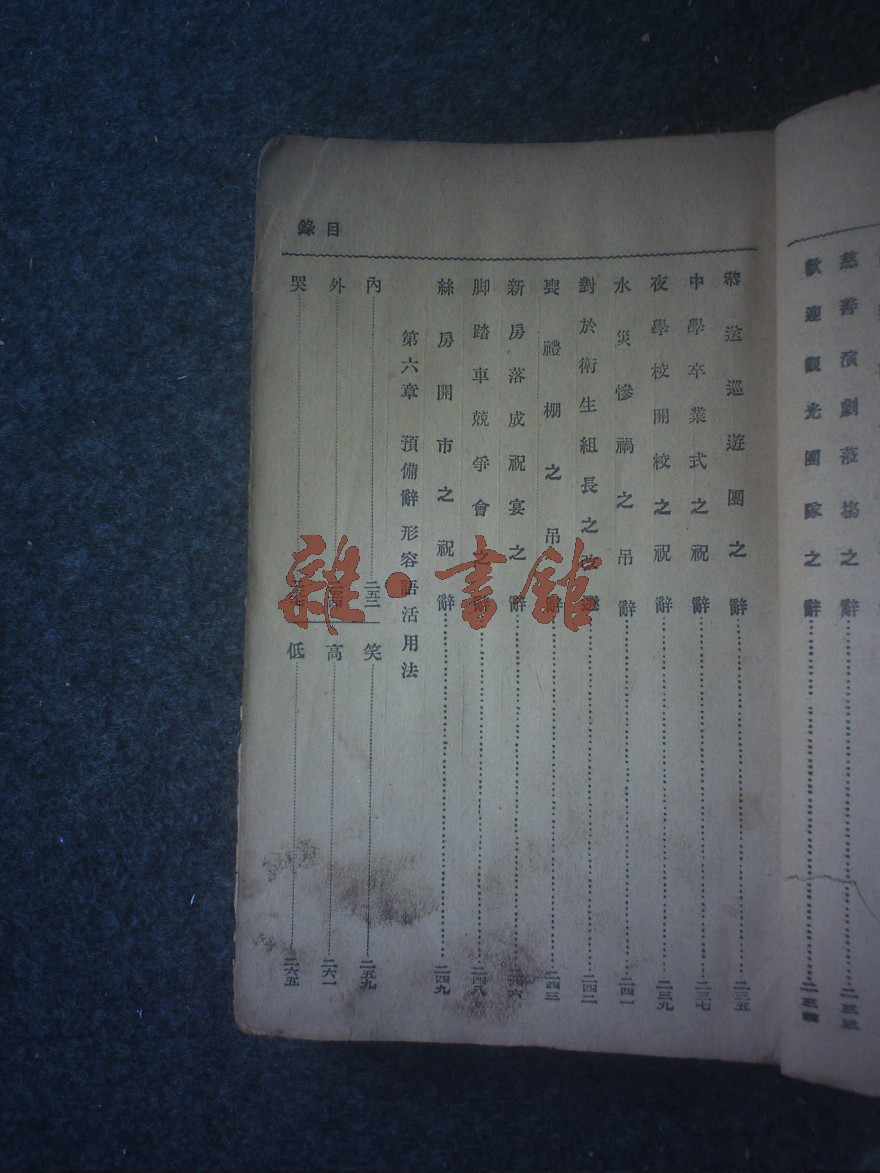 慈善演劇蒞場之辭
歡迎觀光團隊之辭………二三四
目錄
恭送巡遊團之辭………二三五
中學卒業式之祝辭………二三七
夜學校開校之祝辭………二三九
水災慘禍之吊辭………二四一
對於衛生組長之改選………二四二
喪禮棚之吊辭………二四三
新房落成祝宴之辭………二四六
脚踏車競爭會之辭………二四八
絲房開市之祝辭………二四九
第六章 預備辭 形容語活用法
內………二五二
外
哭
笑………二五九
高………二六一
低………二六五
雜·書館